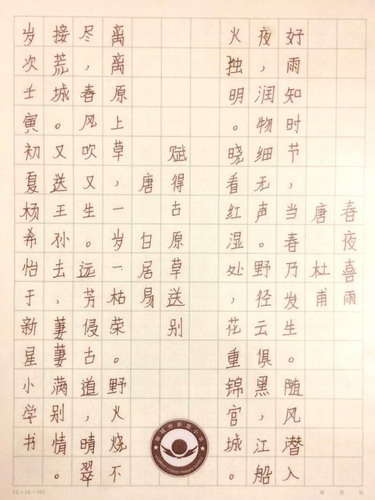 春夜喜雨
唐 杜甫
好雨知时节，当春乃发生。随风潜入
夜，润物细无声。野径云俱黑，江船
火独明。晓看红湿处，花重锦官城。
赋得古原草送别
唐 白居易
离离原上草，一岁一枯荣。野火烧不
尽，春风吹又生。远芳侵古道，晴翠
接荒城。又送王孙去，萋萋满别情。
岁次壬寅初夏杨希怡于新星小学书